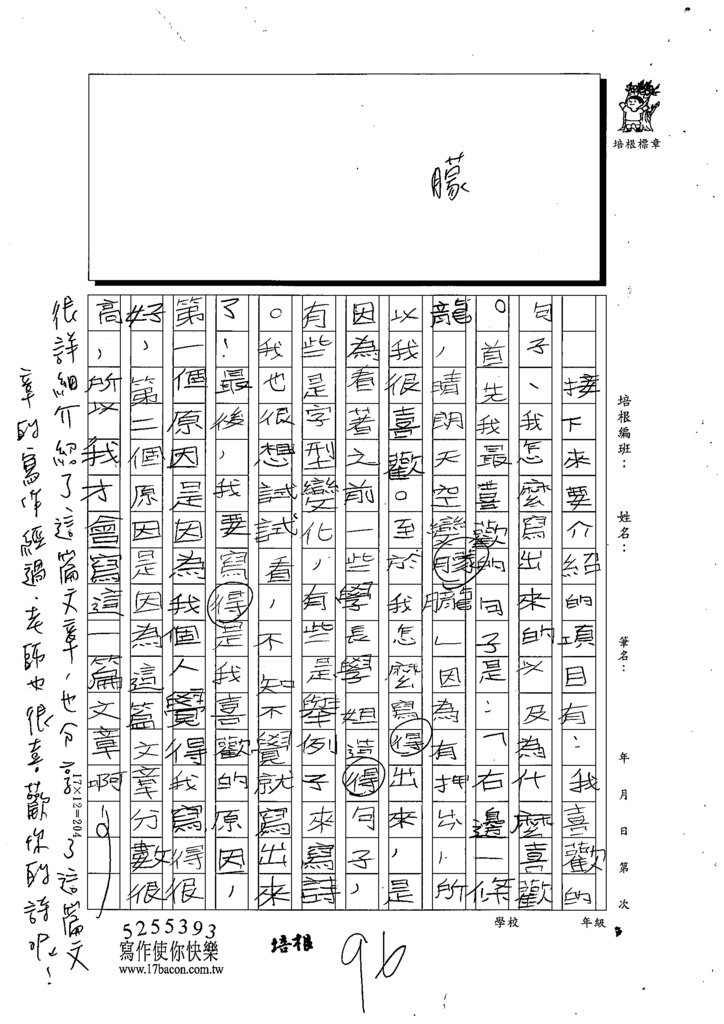 培根標章
朦
培根編班：　姓名：　筆名：　年　月　日　第　次
學校　年級
接下來要介紹的項目有：我喜歡的
句子、我怎麼寫出來的以及為什麼喜歡
。首先我最喜歡的句子是：「右邊一條
龍，晴朗天空變朦朧」因為有押出，所
以我很喜歡。至於我怎麼寫得出來，是
因為看著之前一些學長學姐造得句子，
有些是字型變化，有些是舉例子來寫詩
。我也很想試試看，不知不覺就寫出來
了！最後，我要寫得是我喜歡的原因，
第一個原因是因為我個人覺得我寫得很
好，第二個原因是因為這篇文章分數很
高，所以我才會寫這一篇文章啊~
17×12=204
很詳細介紹了這篇文章，也分享了這篇文
章的寫作經過，老師也很喜歡你的詩呢！
5255393
寫作使你快樂
www.17bacon.com.tw
培根
96